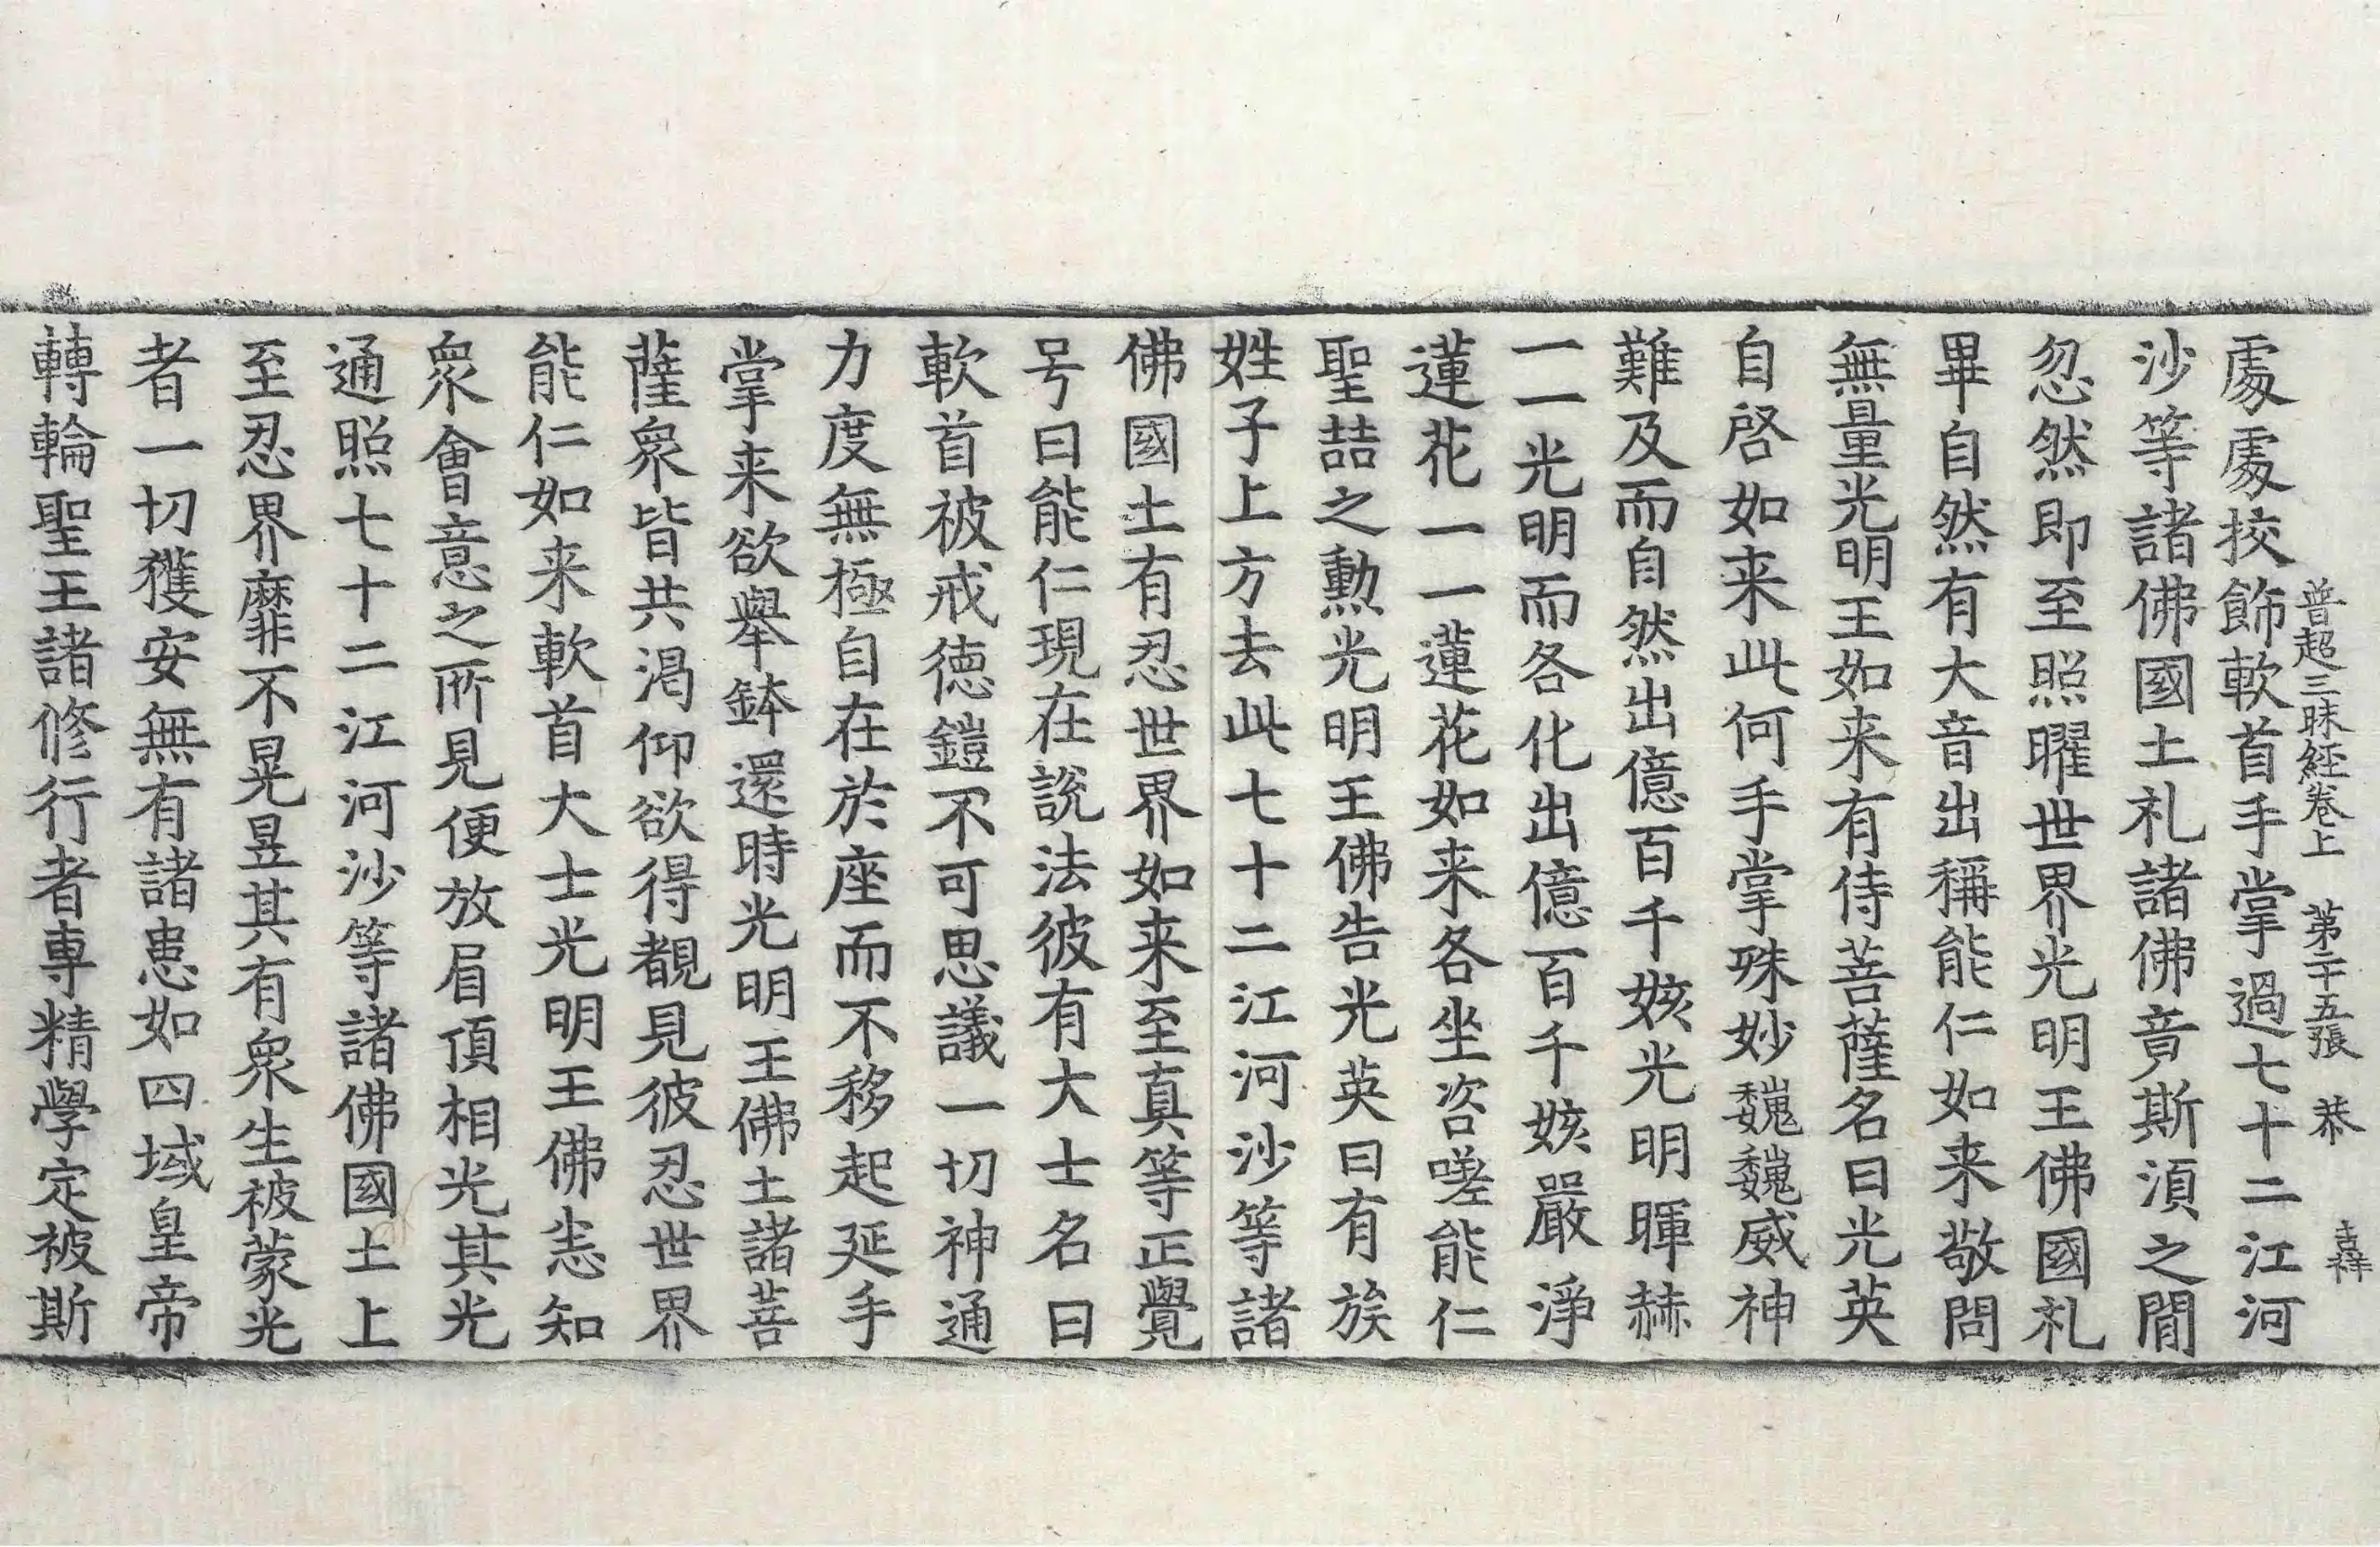 普超三昧經卷上　第二十五張　恭　吉祥
處處挍飾軟首手掌過七十二江河
沙等諸佛國土礼諸佛竟斯湏之閒
忽然即至照曜世界光明王佛國礼
畢自然有大音出稱能仁如来敬問
無量光明王如来有侍菩薩名曰光英
自啓如来此何手掌殊妙巍巍威神
難及而自然出億百千姟光明暉赫
一一光明而各化出億百千姟嚴淨
蓮花一一蓮花如来各坐咨嗟能仁
聖喆之勲光明王佛告光英曰有族
姓子上方去此七十二江河沙等諸
佛國土有忍世界如来至真等正覺
号曰能仁現在說法彼有大士名曰
軟首被戒德鎧不可思議一切神通
力度無極自在於座而不移起延手
掌来欲舉鉢還時光明王佛土諸菩
薩衆皆共渴仰欲得覩見彼忍世界
能仁如来軟首大士光明王佛悉知
衆會意之所見便放眉頂相光其光
通照七十二江河沙等諸佛國土上
至忍界靡不晃昱其有衆生被蒙光
者一切獲安無有諸患如四域皇帝
轉輪聖王諸修行者專精學定被斯